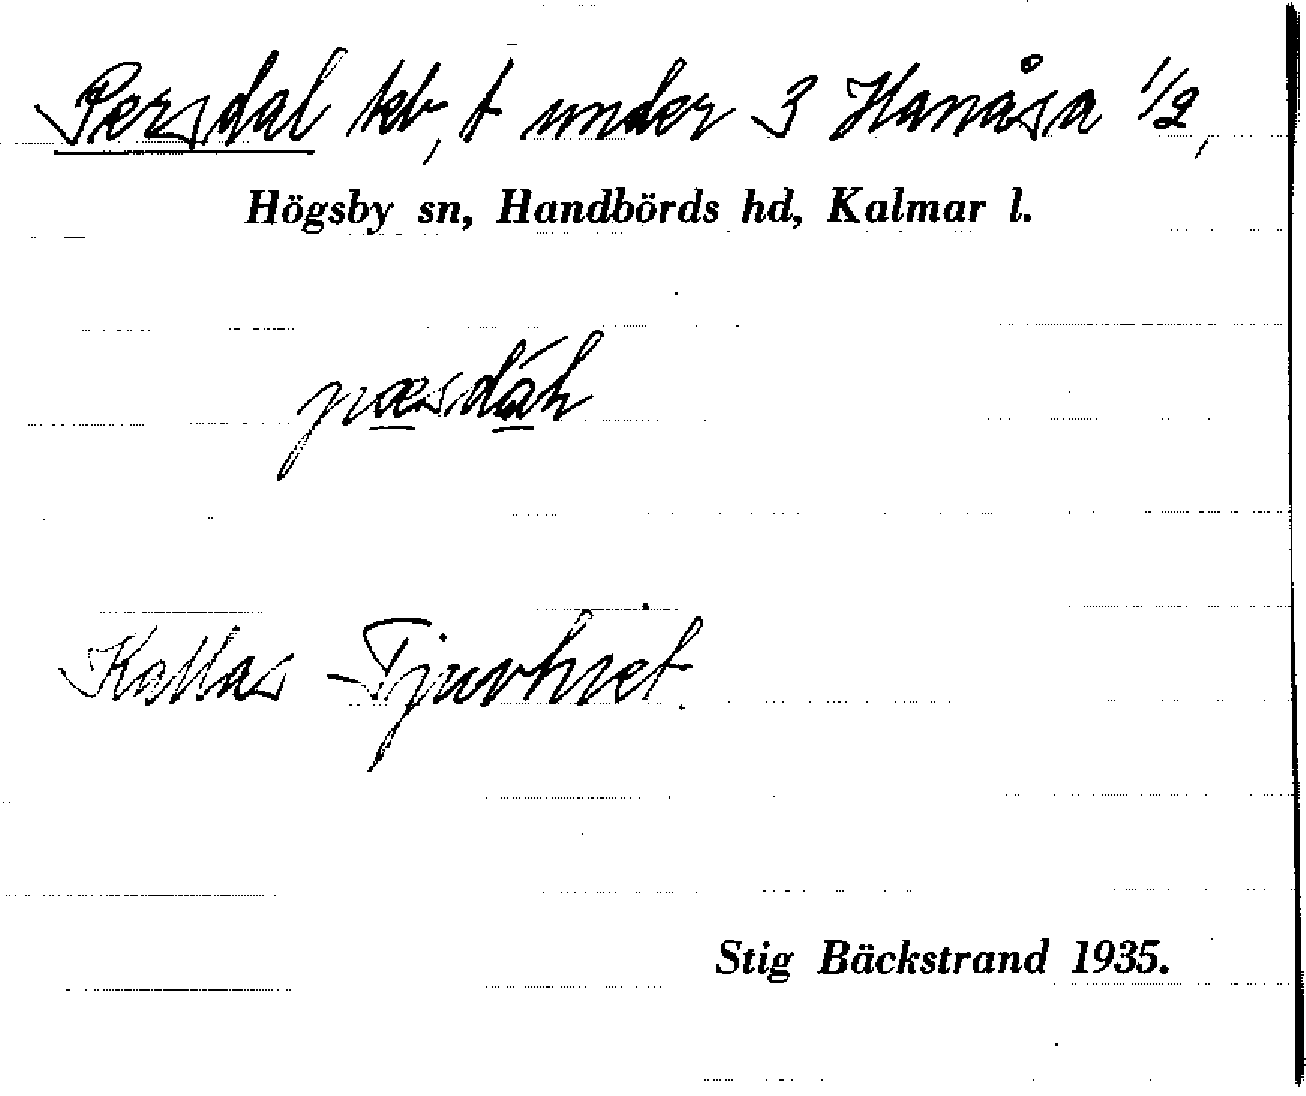 Persdal tkb, t under 3 Hanåsa 1/2,
Högsby sn, Handbörds hd, Kalmar l.
pæsdáh
Kallas Tjuvhuet.
Stig Bäckstrand 1935.